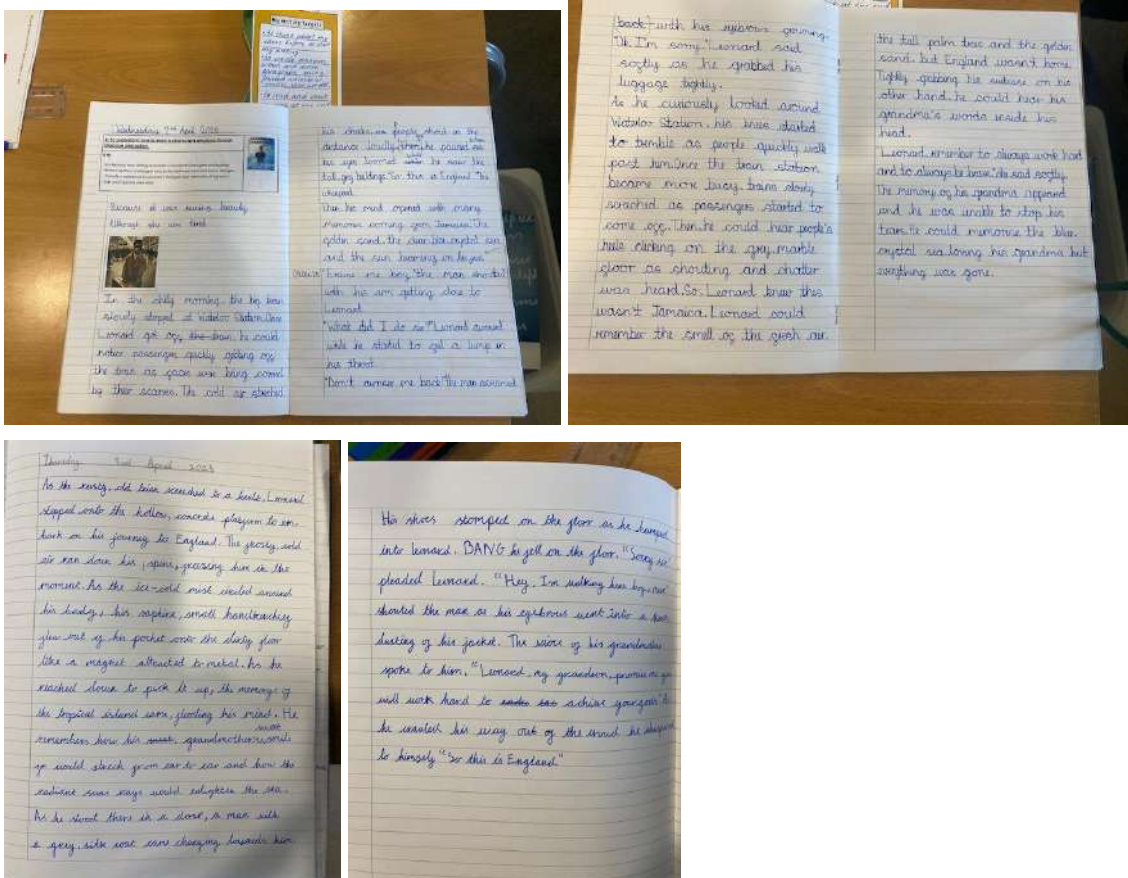 My writing targets
Wednesday 2nd April 2025
Because it was
Although she was tired
In the chilly morning, the big train
slowly stoped at Waterloo Station. Once
Leonard got off, the train, he could
notice passenger quickly getting off
the train as faces were being covered
by their scarves. The cold air streched
his cheeks, as people shout in the
distance loudly, then, he paused as
his eyes he saw the
tall, grey buildings. "So, this is England" he
whisperd
Then his mind opened with many
memories coming from Jamaica. The
golden sand, the clear blue crystal sea
and the sun beaming on his
me boy" the man shouted
with his arm getting close to
Leonard
"What did I do sir" Leonard
while he started to get a lump in
his throat.
"Don't me back" the man screamed
(back) with his eyebrows
"Oh I'm sorry" Leonard said
softly as he grabbed his
luggage tightly.
As he curiously looked around
Waterloo Station, his knees started
to tumble as people quickly walk
past him. Once the train station
became more busy, trains slowly
screached as passengers started to
come off. Then, he could hear people's
heels clicking on the grey marble
floor as shouting and chatter
was heard. So, Leonard knew this
wasn't Jamaica. Leonard could
remember the smell of the fresh air
the tall palm trees and the golden
sand, but England wasn't home.
Tightly grabbing his suitcase on his
other hand, he could hear his
grandma's words inside his
head.
Leonard, remember to always work hard
and to always be brave" she said softly.
The memory of his grandma appeared
and he was unable to stop his
tears, he could memorise the blue
crystal sea, loving his grandma but
everything was gone.
Thursday 3rd April 2025
As the rusty, old train screeched to a halt, Leonard
stepped onto the hollow, concrete platform to em-
bark on his journey to England. The frosty, cold
air ran down his spine, freezing him in the
moment. As the ice-cold mist circled around
his body, his saphire, small handkerchief
flew out of his pocket onto the dirty floor
like a magnet attracted to metal. As he
reached down to pick it up, the memorys of
the tropical island came, flooting his mind. He
remembers how his grandmother's smile
would strech from ear to ear and how the
radiant suns rays would enlighten the sea.
As he stood there in a daze, a man with
a grey, silk coat came charging towards him
His shoes stomped on the floor as he bumped
into lenard. BANG he fell on the floor. "Sorry sir"
pleaded Leonard. "Hey, I'm walking here boy,
shouted the man as his eyebrows went into a
dusting of his jacket. The voice of his grandmother
spoke to him, "Leonard, my grandson, promise me you
will work hard to achive your goals"
he his way out of the crowd he whisperd
to himself "So this is England"